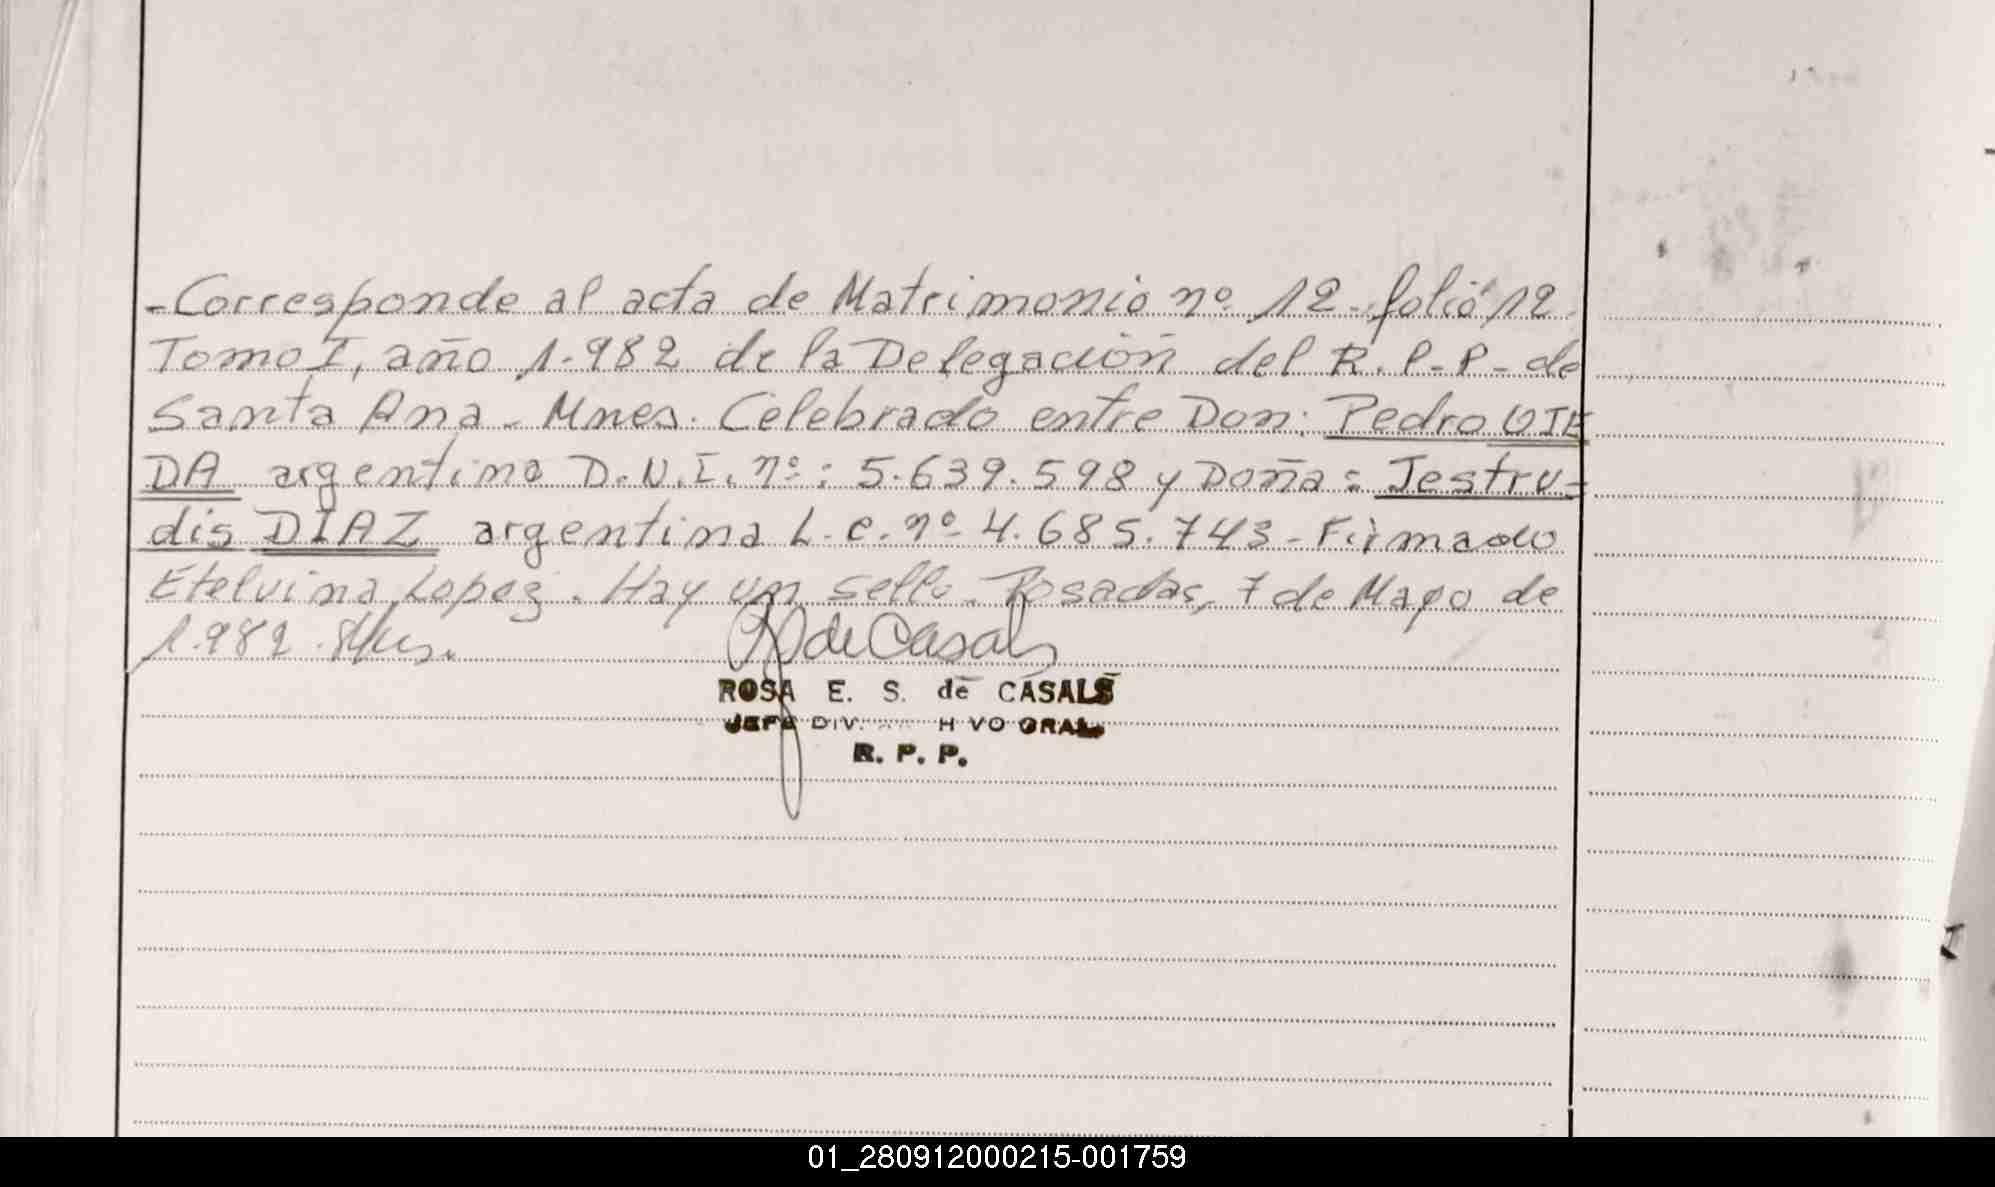 -Corresponde al acta de Matrimonio nº 12 - folio 12
Tomo I, año 1.982 de la Delegación del R.P.P. de
Santa Ana - Mnes. Celebrado entre Don: Pedro OJE
DA argentino D.N.I. nº: 5.639.598 y Doña: Jestru-
dis DIAZ argentina L.C. nº 4.685.743 - Firmado
Etelvina Lopez. Hay un sello. Posadas, 7 de Mayo de
1.982.
de Casals
ROSA E. S. de CASALS
JEFE DIV. H VO GRAL.
R. P. P.
01_280912000215-001759